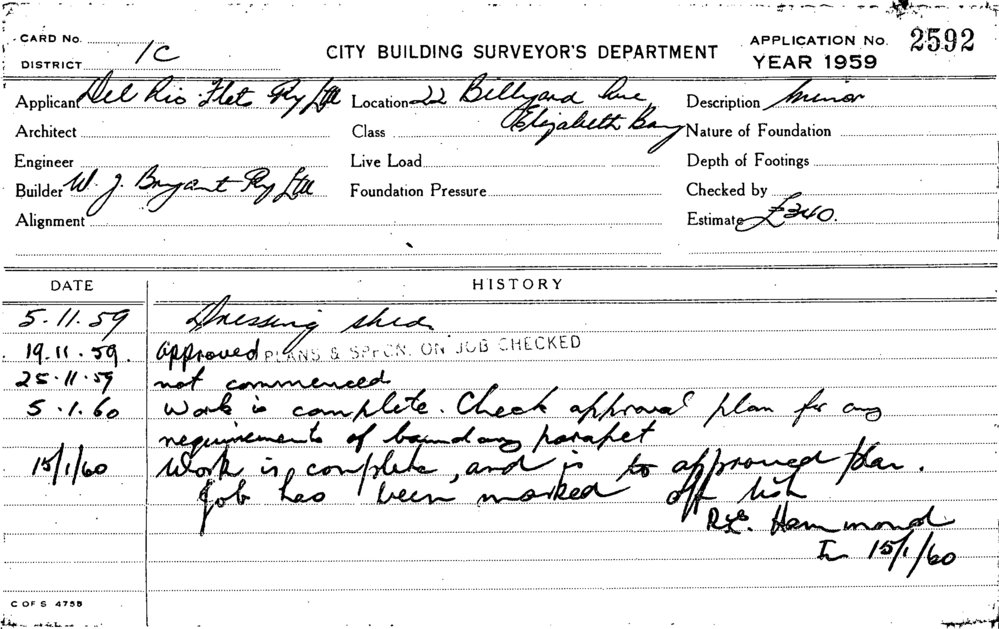 CARD No.
DISTRICT 1C
CITY BUILDING SURVEYOR'S DEPARTMENT
APPLICATION No. 2592
YEAR 1959
Applicant Del Rio Flats Pty Ltd Location 22 Billyard Ave, Description Minor
Architect Class Elizabeth Bay Nature of Foundation
Engineer Live Load Depth of Footings
Builder W. J. Bryant Pty Ltd Foundation Pressure Checked by
Alignment Estimate £340.
DATE HISTORY
5.11.59 Dressing shed
19.11.59. approved PLANS & SPECN. ON JOB CHECKED
25.11.59 not commenced
5.1.60 Work is complete. Check approval plan for any
requirements of boundary parapet
15/1/60 Work is complete, and is to approved plan.
Job has been marked off list
Hammond
15/1/60
C OF S 4758